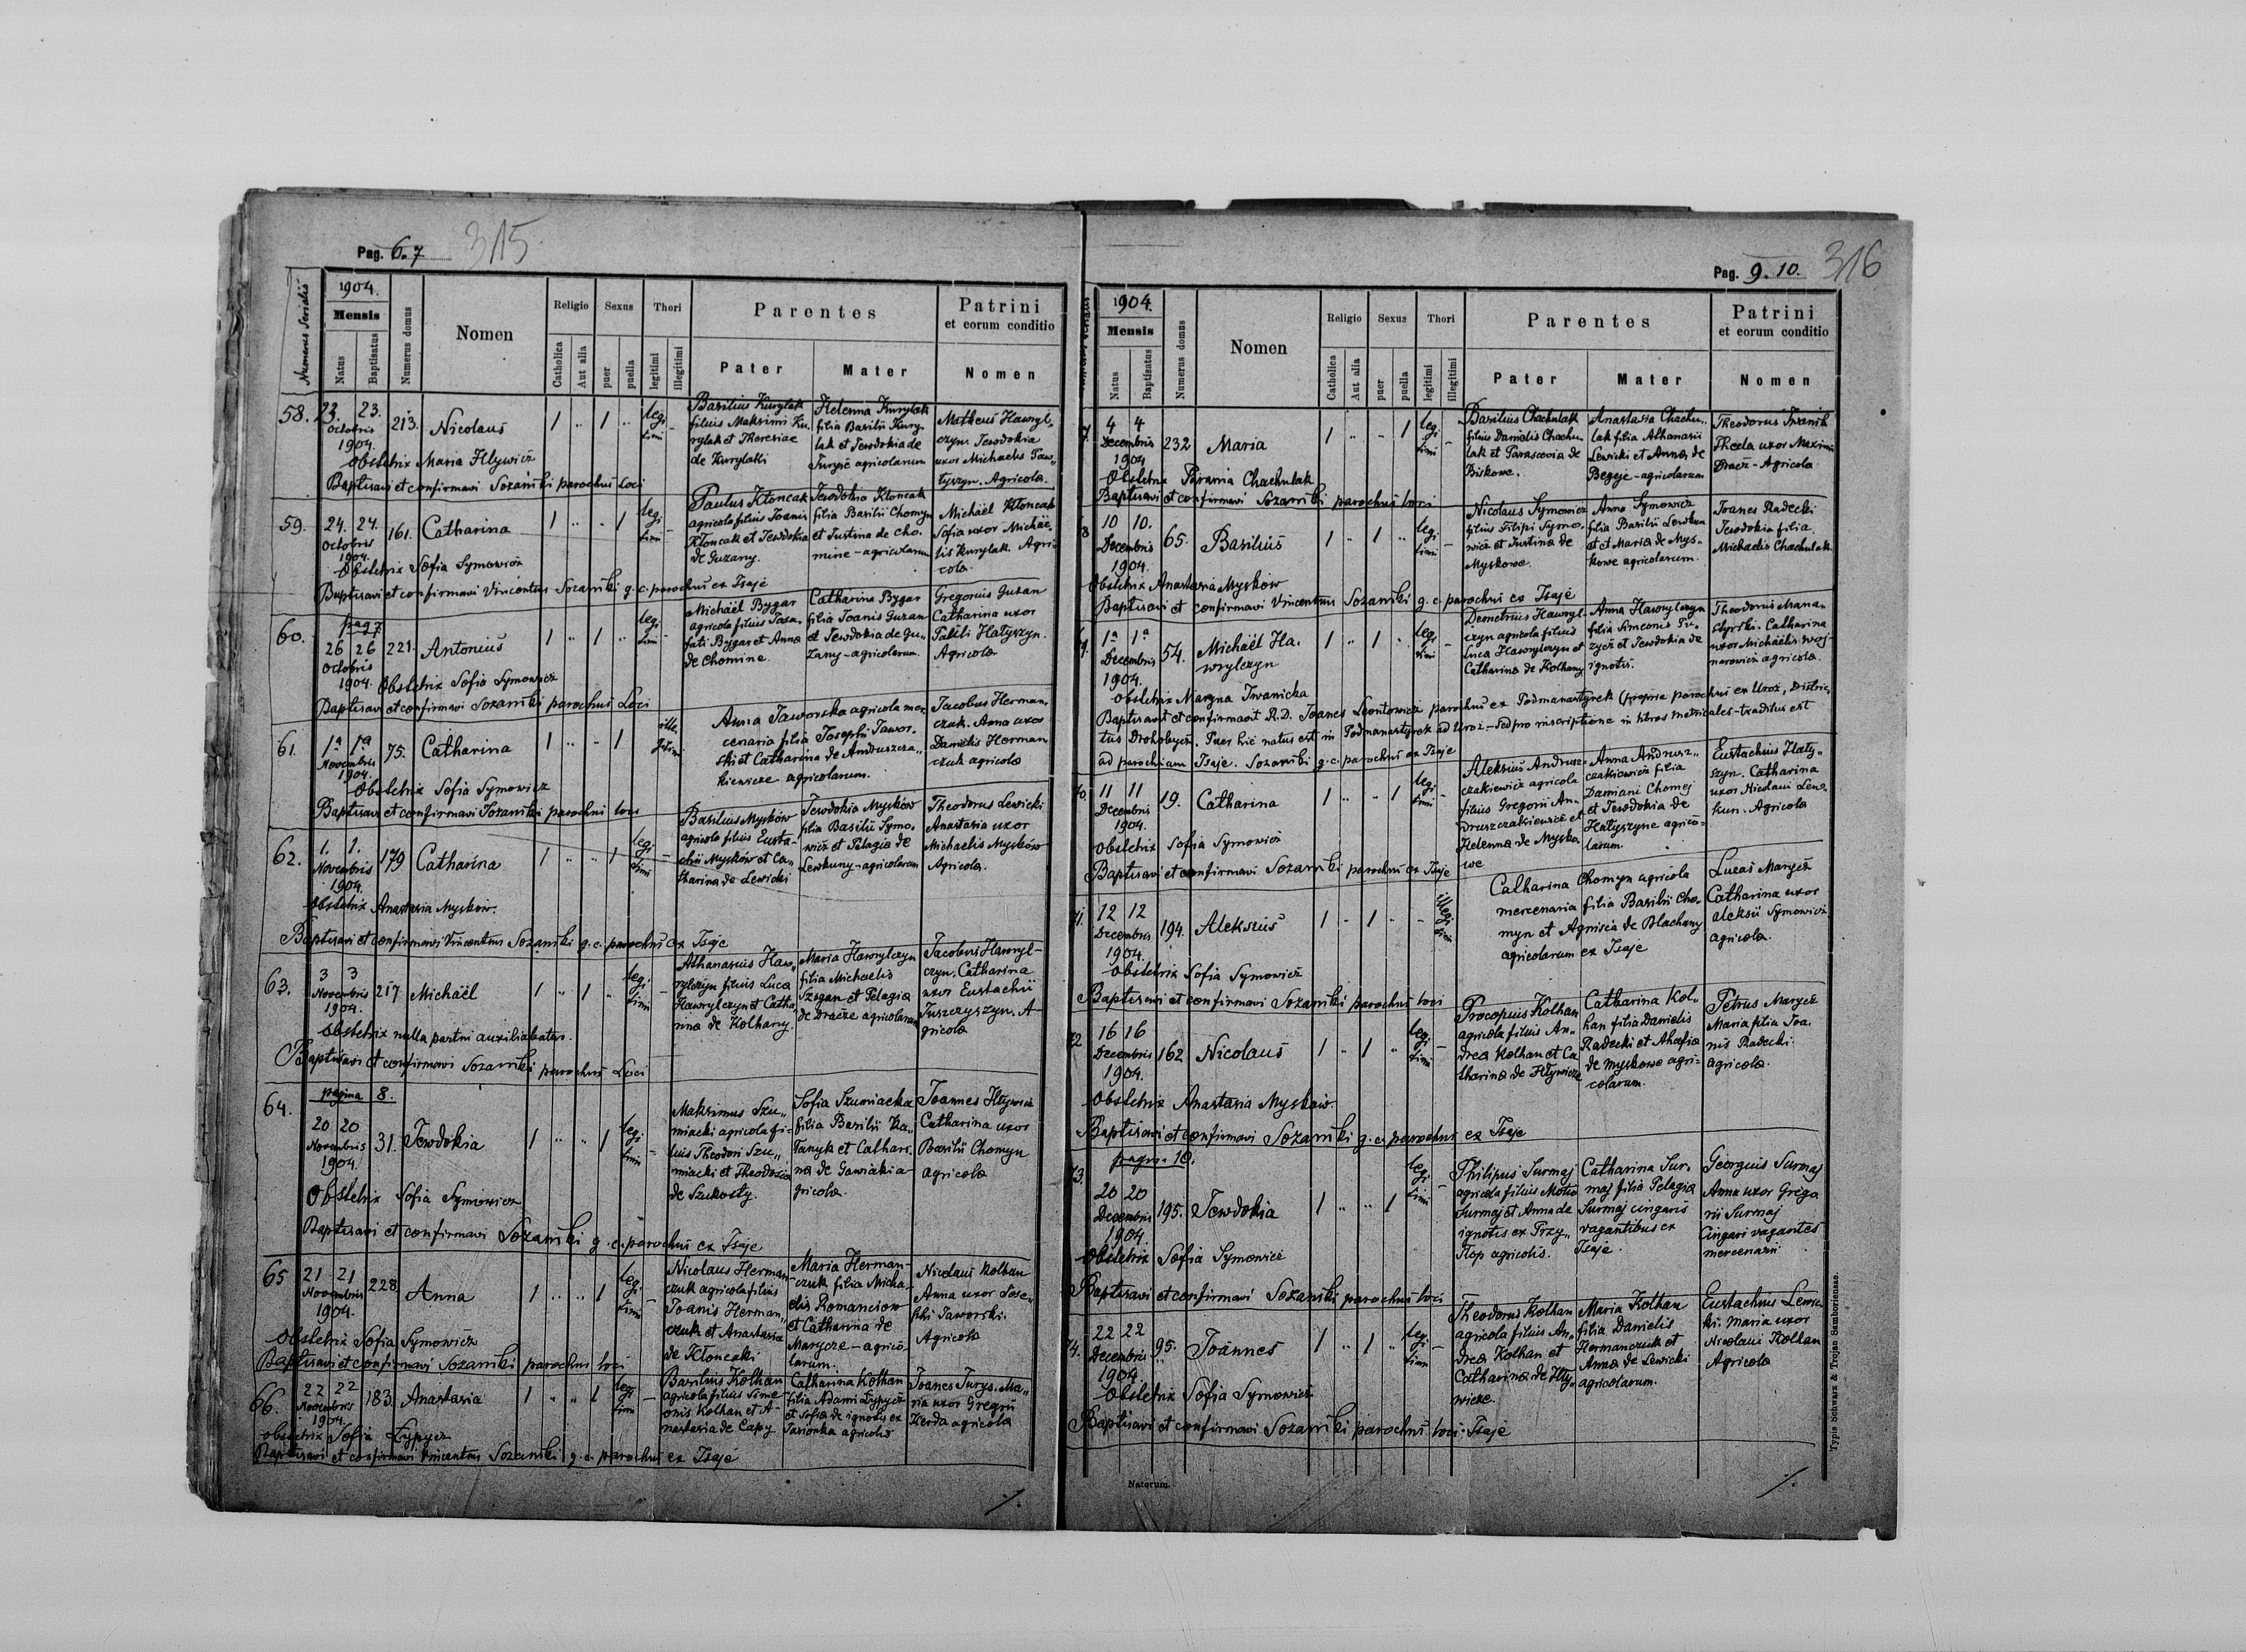 Pag. 6. 7. 315
Numerus Serialis
1904.
Mensis
Natus
Baptisatus
Numerus domus
Nomen
Religio
Catholica
Aut alia
Sexus
puer
puella
Thori
legitimi
illegitimi
Parentes
Pater
Mater
Patrini
et eorum conditio
Nomen
58. 23. 23. 213. Nicolaus 1 .. 1 .. legi
Octobris
timi
1904.
Basilius Kurylak
filius Maksimi Ku
rylak et Theresiae
de Kurylaki
Helenna Kurylak
filia Basilii Kury-
lak et Tewdokia de
Jurysc agricolarum
Matheus Hawryl-
czyn Tewdokia
uxor Michaelis Taw-
tyszyn. Agricola.
Obstetrix Maria Hlywicz
Baptisavi et confirmavi Sozański parochus Loci
59. 24. 24. 161. Catharina 1 .. .. 1 legi
Octobris
timi
1904.
Paulus Kłoncak
agricola filius Joanis
Kłoncak et Tewdokia
de Guzany.
Tewdokia Kłoncak
filia Basilii Chomyn
et Justina de Cho-
mine - agricolarum
Michaël Kłoncak
Sofia uxor Michaë-
lis Kurylak. Agri-
cola.
Obstetrix Sofia Symowicz
Baptisavi et confirmavi Vincentius Sozański g. c. parochus ex Isaje
pag 7
60. 26 26 221. Antonius 1 .. 1 .. legi
Octobris
timi
1904.
Michaël Bygar
agricola filius Josa-
fati Bygar et Anna
de Chomine.
Catharina Bygar
filia Joanis Guzan
et Tewdokia de Gu-
zany - agricolarum.
Gregorius Guzan
Catharina uxor
Pauli Hatyszyn.
Agricola
Obstetrix Sofia Symowicz
Baptisavi et confirmavi Sozański parochus Loci
61. 1a 1a 75. Catharina 1 .. .. 1 ille
gitimi
Novembris
1904.
Anna Jaworska agricola mer
cenaria filia Josephi Jawor-
ski et Catharina de Andruszcza-
kiewicze agricolarum.
Jacobus Herman-
czuk. Anna uxor
Danielis Herman
czuk agricola
Obstetrix Sofia Symowicz
Baptisavi et confirmavi Sozański parochus loci
62. 1. 1. 179 Catharina 1 .. .. 1 legi
Novembris
timi
1904.
Basilius Mysków
agricola filius Eusta-
chii Mysków et Ca-
tharina de Lewicki
Tewdokia Mysków
filia Basilii Symo-
wicz et Pelagia de
Lewkuny - agricolarum
Theodorus Lewicki
Anastasia uxor
Michaelis Mysków
Agricola.
Obstetrix Anastasia Mysków.
Baptisavi et confirmavi Vincentius Sozański g. c. parochus ex Isaje
63. 3 3 217 Michaël 1 .. 1 .. legi
Novembris
timi
1904.
Athanasius Haw-
rylczyn filius Luca
Hawrylczyn et Catha
rina de Kolhany.
Maria Hawrylczyn
filia Michaelis
Szegan et Pelagia
de Dracze agricolarum
Jacobus Hawryl-
czyn. Catharina
uxor Eustachii
Juszczyszyn. A
gricola
Obstetrix nulla partui auxiliabatur.
Baptisavi et confirmavi Sozański parochus Loci
pagina 8.
64. 20 20 31. Tewdokia 1 .. .. 1 legi
Novembris
timi
1904.
Maksimus Szu-
miacki agricola fi-
lius Theodori Szu-
miacki et Theodosia
de Szukosty.
Sofia Szumiacka
filia Basilii Ka-
tanyk et Cathari-
na de Gawiaki a-
gricola.
Joannes Hlywicz
Catharina uxor
Basilii Chomyn
agricola
Obstetrix Sofia Symowicz
Baptisavi et confirmavi Sozański g. c. parochus ex Isaje
65 21 21 228 Anna 1 .. .. 1 legi
Novembris
timi
1904.
Nicolaus Herman-
czuk agricola filius
Joanis Herman-
czuk et Anastasia
de Kłoncaki
Maria Herman-
czuk filia Micha-
elis Romanciow
et Catharina de
Marycze - agrico-
larum.
Nicolaus Kolhan
Anna uxor Jose-
phi Jaworski.
Agricola
Obstetrix Sofia Symowicz
Baptisavi et confirmavi Sozański parochus loci
66. 22 22 183. Anastasia 1 .. .. 1 legi
Novembris
timi
1904.
Basilius Kolhan
agricola filius Sime-
onis Kolhan et A-
nastasia de Capy
Catharina Kolhan
filia Adami Łypycz
et Sofia de ignotis ex
Jasionka agricolis
Joanes Jurys. Ma-
ria uxor Gregorii
Kerda agricola
Obstetrix Sofia Łypycz
Baptisavi et confirmavi Vincentius Sozański g. c. parochus ex Isaje
Pag. 9. 10. 316
1904.
Mensis
Natus
Baptisatus
Numerus domus
Nomen
Religio
Catholica
Aut alia
Sexus
puer
puella
Thori
legitimi
illegitimi
Parentes
Pater
Mater
Patrini
et eorum conditio
Nomen
7. 4 4 232 Maria 1 .. .. 1 legi
Decembris
timi
1904
Basilius Chachulak
filius Danielis Chachu-
lak et Parascevia de
Biskowe.
Anastasia Chachu-
lak filia Athanasii
Lewicki et Anna de
Begeje - agricolarum
Theodorus Iwanik
Thecla uxor Maximi
Dracz - Agricola
Obstetrix Parania Chachulak
Baptisavi et confirmavi Sozański parochus loci
8 10 10. 65. Basilius 1 .. 1 .. legi
Decembris
timi
1904.
Nicolaus Symowicz
filius Filipi Symo-
wicz et Justina de
Myskowe.
Anna Symowicz
filia Basilii Lewkun
et et Maria de Mys-
kowe agricolarum.
Joanes Radecki
Tewdokia filia
Michaelis Chachulak
Obstetrix Anastasia Mysków
Baptisavi et confirmavi Vincentius Sozański g. c. parochus ex Isaje
9. 1a 1a 54. Michaël Ha-
wrylczyn 1 .. 1 .. legi
Decembris
timi
1904.
Demetrius Hawryl-
czyn agricola filius
Luca Hawrylczyn et
Catharina de Kolhany
Anna Hawrylczyn
filia Simeonis Tu-
rycz et Tewdokia de
ignotis.
Theodorus Mana-
styrski. Catharina
uxor Michaëlis Woj-
narowicz agricola.
Obstetrix Maryna Iwanicka
Baptisavit et confirmavit R.D. Joanes Leontowicz parochus ex Podmanastyrek (proprie parochus ex Uroż, Distric-
tus Drohobycz. Puer hic natus est in Podmanastyrek ad Uroż - sed pro inscriptione in libros metricales traditus est
ad parochiam Isaje. Sozański g. c. parochus ex Isaje
70. 11 11 19. Catharina 1 .. .. 1 legi
Decembris
timi
1904.
Aleksius Andrusz-
czakiewicz agricola
filius Gregorii An-
druszczakiewicz et
Helenna de Mysko-
we
Anna Andrusz-
czakiewicz filia
Damiani Chomej
et Tewdokia de
Hatyszyne agrico-
larum.
Eustachius Haty-
szyn. Catharina
uxor Nicolai Lew-
kun. Agricola
Obstetrix Sofia Symowicz
Baptisavi et confirmavi Sozański parochus ex Isaje
71. 12 12 194. Aleksius 1 .. 1 .. illegi
timi
Decembris
1904.
Catharina Chomyn agricola
mercenaria filia Basilii Cho-
myn et Agnisia de Blachany
agricolarum ex Isaje
Lucas Marycz
Catharina uxor
Aleksii Symowicz
agricola.
Obstetrix Sofia Symowicz
Baptisavi et confirmavi Sozański parochus loci
72 16 16 162 Nicolaus 1 .. 1 .. legi
Decembris
timi
1904.
Procopius Kolhan
agricola filius An-
drea Kolhan et Ca
tharina de Hlywicze
Catharina Kol-
han filia Danielis
Radecki et Ahafia
de Myskowe agri-
colarum.
Petrus Marycz
Maria filia Joa-
nis Radecki.
agricola.
Obstetrix Anastasia Mysków.
Baptisavi et confirmavi Sozański g. c. parochus ex Isaje
pagina 10.
73. 20 20 195. Tewdokia 1 .. .. 1 legi
Decembris
timi
1904.
Philipus Surmaj
agricola filius Motio
Surmaj et Anna de
ignotis ex Przy-
łlop agricolis.
Catharina Sur-
maj filia Pelagia
Surmaj cingaris
vagantibus ex
Isaje.
Georgius Surmaj
Anna uxor Grego
rii Surmaj
Cingari vagantes
mercenarii
Obstetrix Sofia Symowicz
Baptisavi et confirmavi Sozański parochus loci
74. 22 22 95. Joannes 1 .. 1 .. legi
Decembris
timi
1904.
Theodorus Kolhan
agricola filius An-
drea Kolhan et
Catharina de Hly-
wicze.
Maria Kolhan
filia Danielis
Hermanczuk et
Anna de Lewicki
agricolarum.
Eustachius Lewic
ki. Maria uxor
Nicolai Kolhan
Agricola
Obstetrix Sofia Symowicz
Baptisavi et confirmavi Sozański parochus loci: Isaje
Natorum.
Typis Schwarz & Trojan Samboriensae.